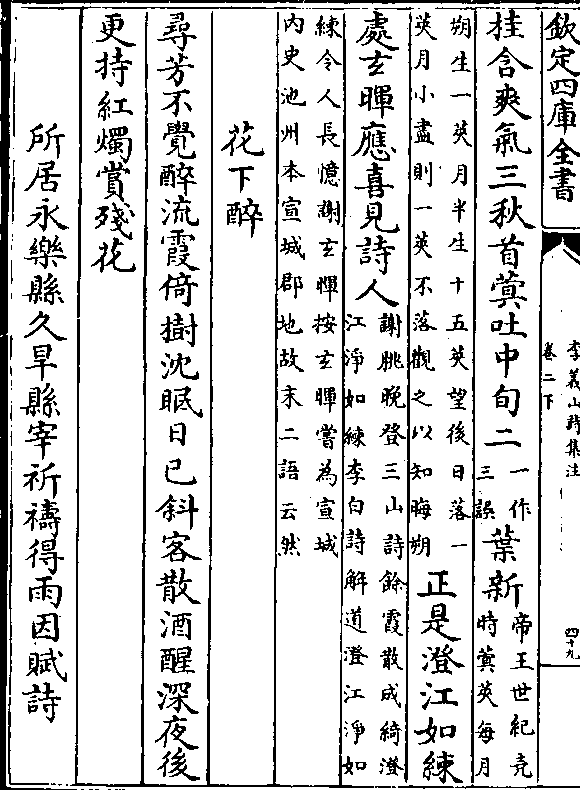 欽定四庫全書
李義山詩集注
卷二下
四十九
桂含爽氣三秋首蓂吐中旬二一作三誤葉新帝王世紀堯時蓂莢每月
朔生一莢月半生十五莢望後日落一莢月小盡則一莢不落觀之以知晦朔正是澄江如練
處玄暉應喜見詩人謝朓晚登三山詩餘霞散成綺澄江淨如練李白詩解道澄江淨如
練令人長憶謝玄暉按玄暉嘗為宣城内史池州本宣城郡地故末二語云然
花下醉
尋芳不覺醉流霞倚樹沈眠日已斜客散酒醒深夜後
更持紅燭賞殘花
所居永樂縣久旱縣宰祈禱得雨因賦詩